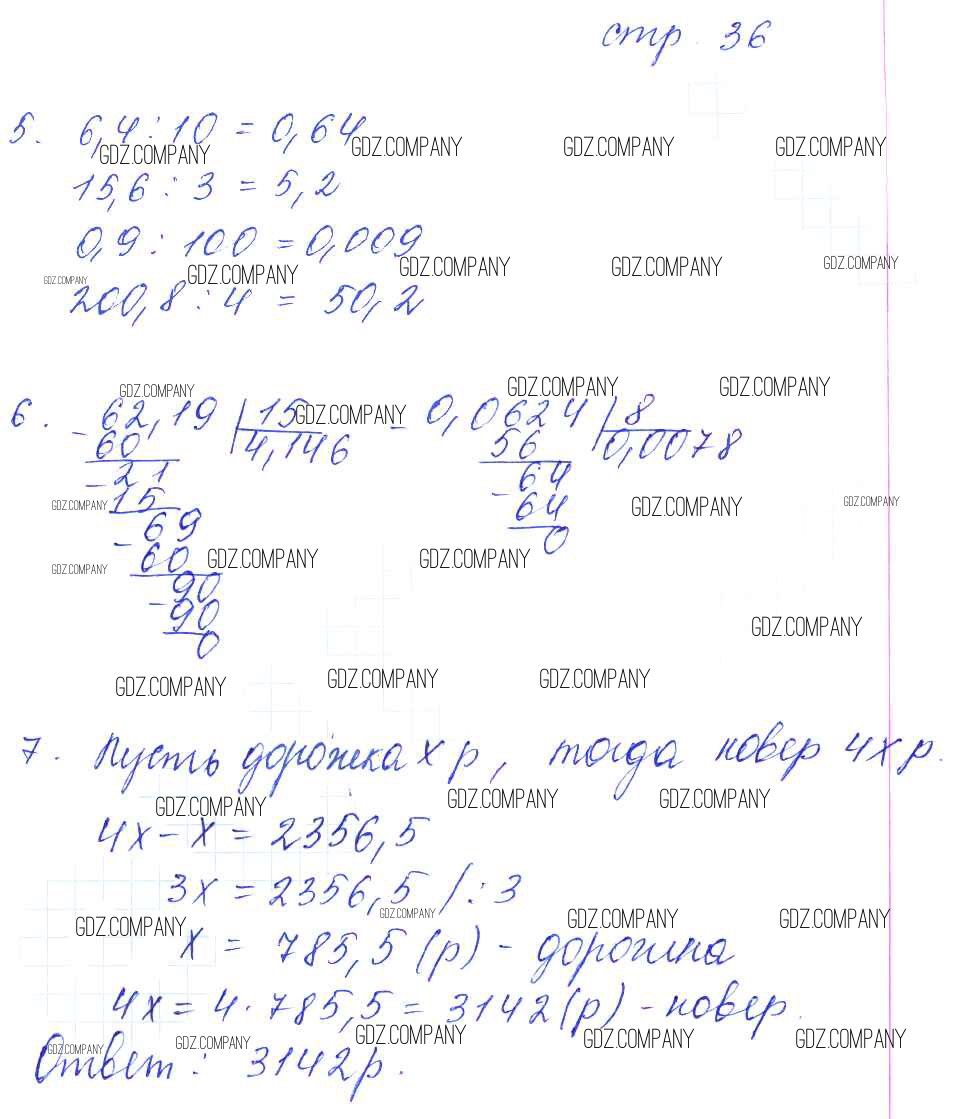 стр. 36
5. 6,4 : 10 = 0,64
GDZ.COMPANY GDZ.COMPANY GDZ.COMPANY GDZ.COMPANY
15,6 : 3 = 5,2
0,9 : 100 = 0,009
GDZ.COMPANY GDZ.COMPANY GDZ.COMPANY GDZ.COMPANY GDZ.COMPANY
200,8 : 4 = 50,2
GDZ.COMPANY GDZ.COMPANY GDZ.COMPANY
6. - 62,19 | 15 GDZ.COMPANY - 0,0624 | 8
60 4,146 56 0,0078
- 21 64
GDZ.COMPANY 15 - 64 GDZ.COMPANY GDZ.COMPANY
69 0
- 60 GDZ.COMPANY GDZ.COMPANY
GDZ.COMPANY 90
- 90
0 GDZ.COMPANY
GDZ.COMPANY GDZ.COMPANY GDZ.COMPANY
7. Пусть дорожка x р, тогда ковер 4x р.
GDZ.COMPANY GDZ.COMPANY GDZ.COMPANY
4x - x = 2356,5
3x = 2356,5 /: 3
GDZ.COMPANY GDZ.COMPANY GDZ.COMPANY GDZ.COMPANY
x = 785,5 (р) - дорожка
4x = 4 · 785,5 = 3142 (р) - ковер.
GDZ.COMPANY GDZ.COMPANY GDZ.COMPANY GDZ.COMPANY GDZ.COMPANY
Ответ: 3142 р.